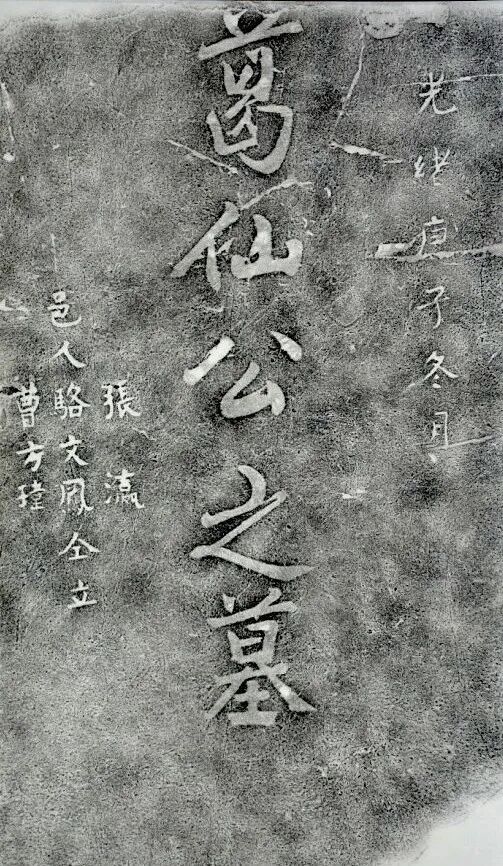 光緒庚子冬月
葛仙公之墓
張瀛
邑人駱文鳳仝立
曹方瑾